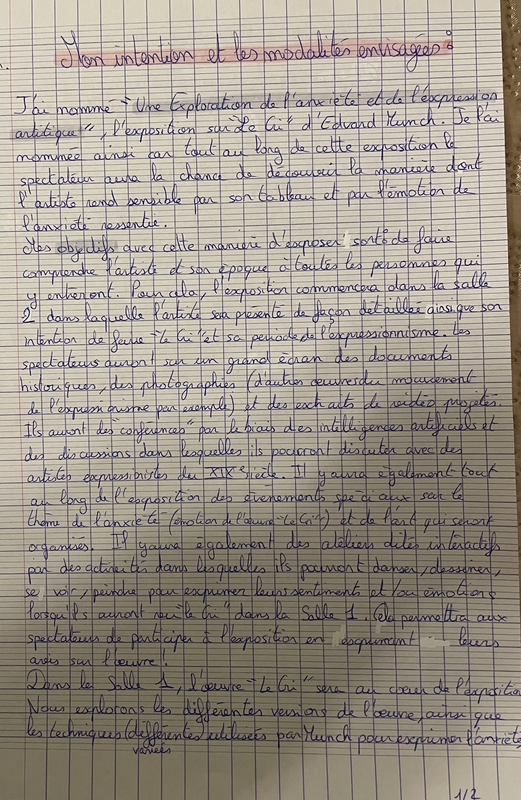 Mon intention et les modalités envisagées :
J'ai nommé "Une Exploration de l'anxiété et de l'expression
artistique", l'exposition sur "Le Cri" d'Edvard Munch. Je l'ai
nommée ainsi car tout au long de cette exposition le
spectateur aura la chance de découvrir la manière dont
l'artiste rend sensible par son tableau et par l'émotion de
l'anxiété ressentie.
Mes objectifs avec cette manière d'exposer sont de faire
comprendre l'artiste et son époque à toutes les personnes qui
y entreront. Pour cela, l'exposition commencera dans la salle
2 dans laquelle l'artiste sera présenté de façon détaillée ainsi que son
intention de faire "Le Cri" et sa période de l'expressionnisme. Les
spectateurs auront sur un grand écran des documents
historiques, des photographies (d'autres œuvres du mouvement
de l'expressionisme par exemple) et des extraits de vidéo projetés.
Ils auront des "conférences" par le biais des intelligences artificiels et
des discussions dans lesquelles ils pourront discuter avec des
artistes expressionistes du XIXe siècle. Il y aura également tout
au long de l'exposition des évènements spéciaux sur le
thème de l'anxiété (émotion de l'œuvre "Le Cri") et de l'art qui seront
organisés. Il y aura également des ateliers dits interactifs
par des activités dans lesquelles ils pourront danser, dessiner,
se voir, peindre pour exprimer leurs sentiments et/ou émotions
lorsqu'ils auront vu "Le Cri" dans la Salle 1. Cela permettra aux
spectateurs de participer à l'exposition en exprimant leurs
avis sur l'œuvre !
Dans la Salle 1, l'œuvre "Le Cri" sera au cœur de l'exposition
Nous explorons les différentes versions de l'œuvre, ainsi que
les techniques (différentes) utilisées par Munch pour exprimer l'anxiété,
variées
1/2